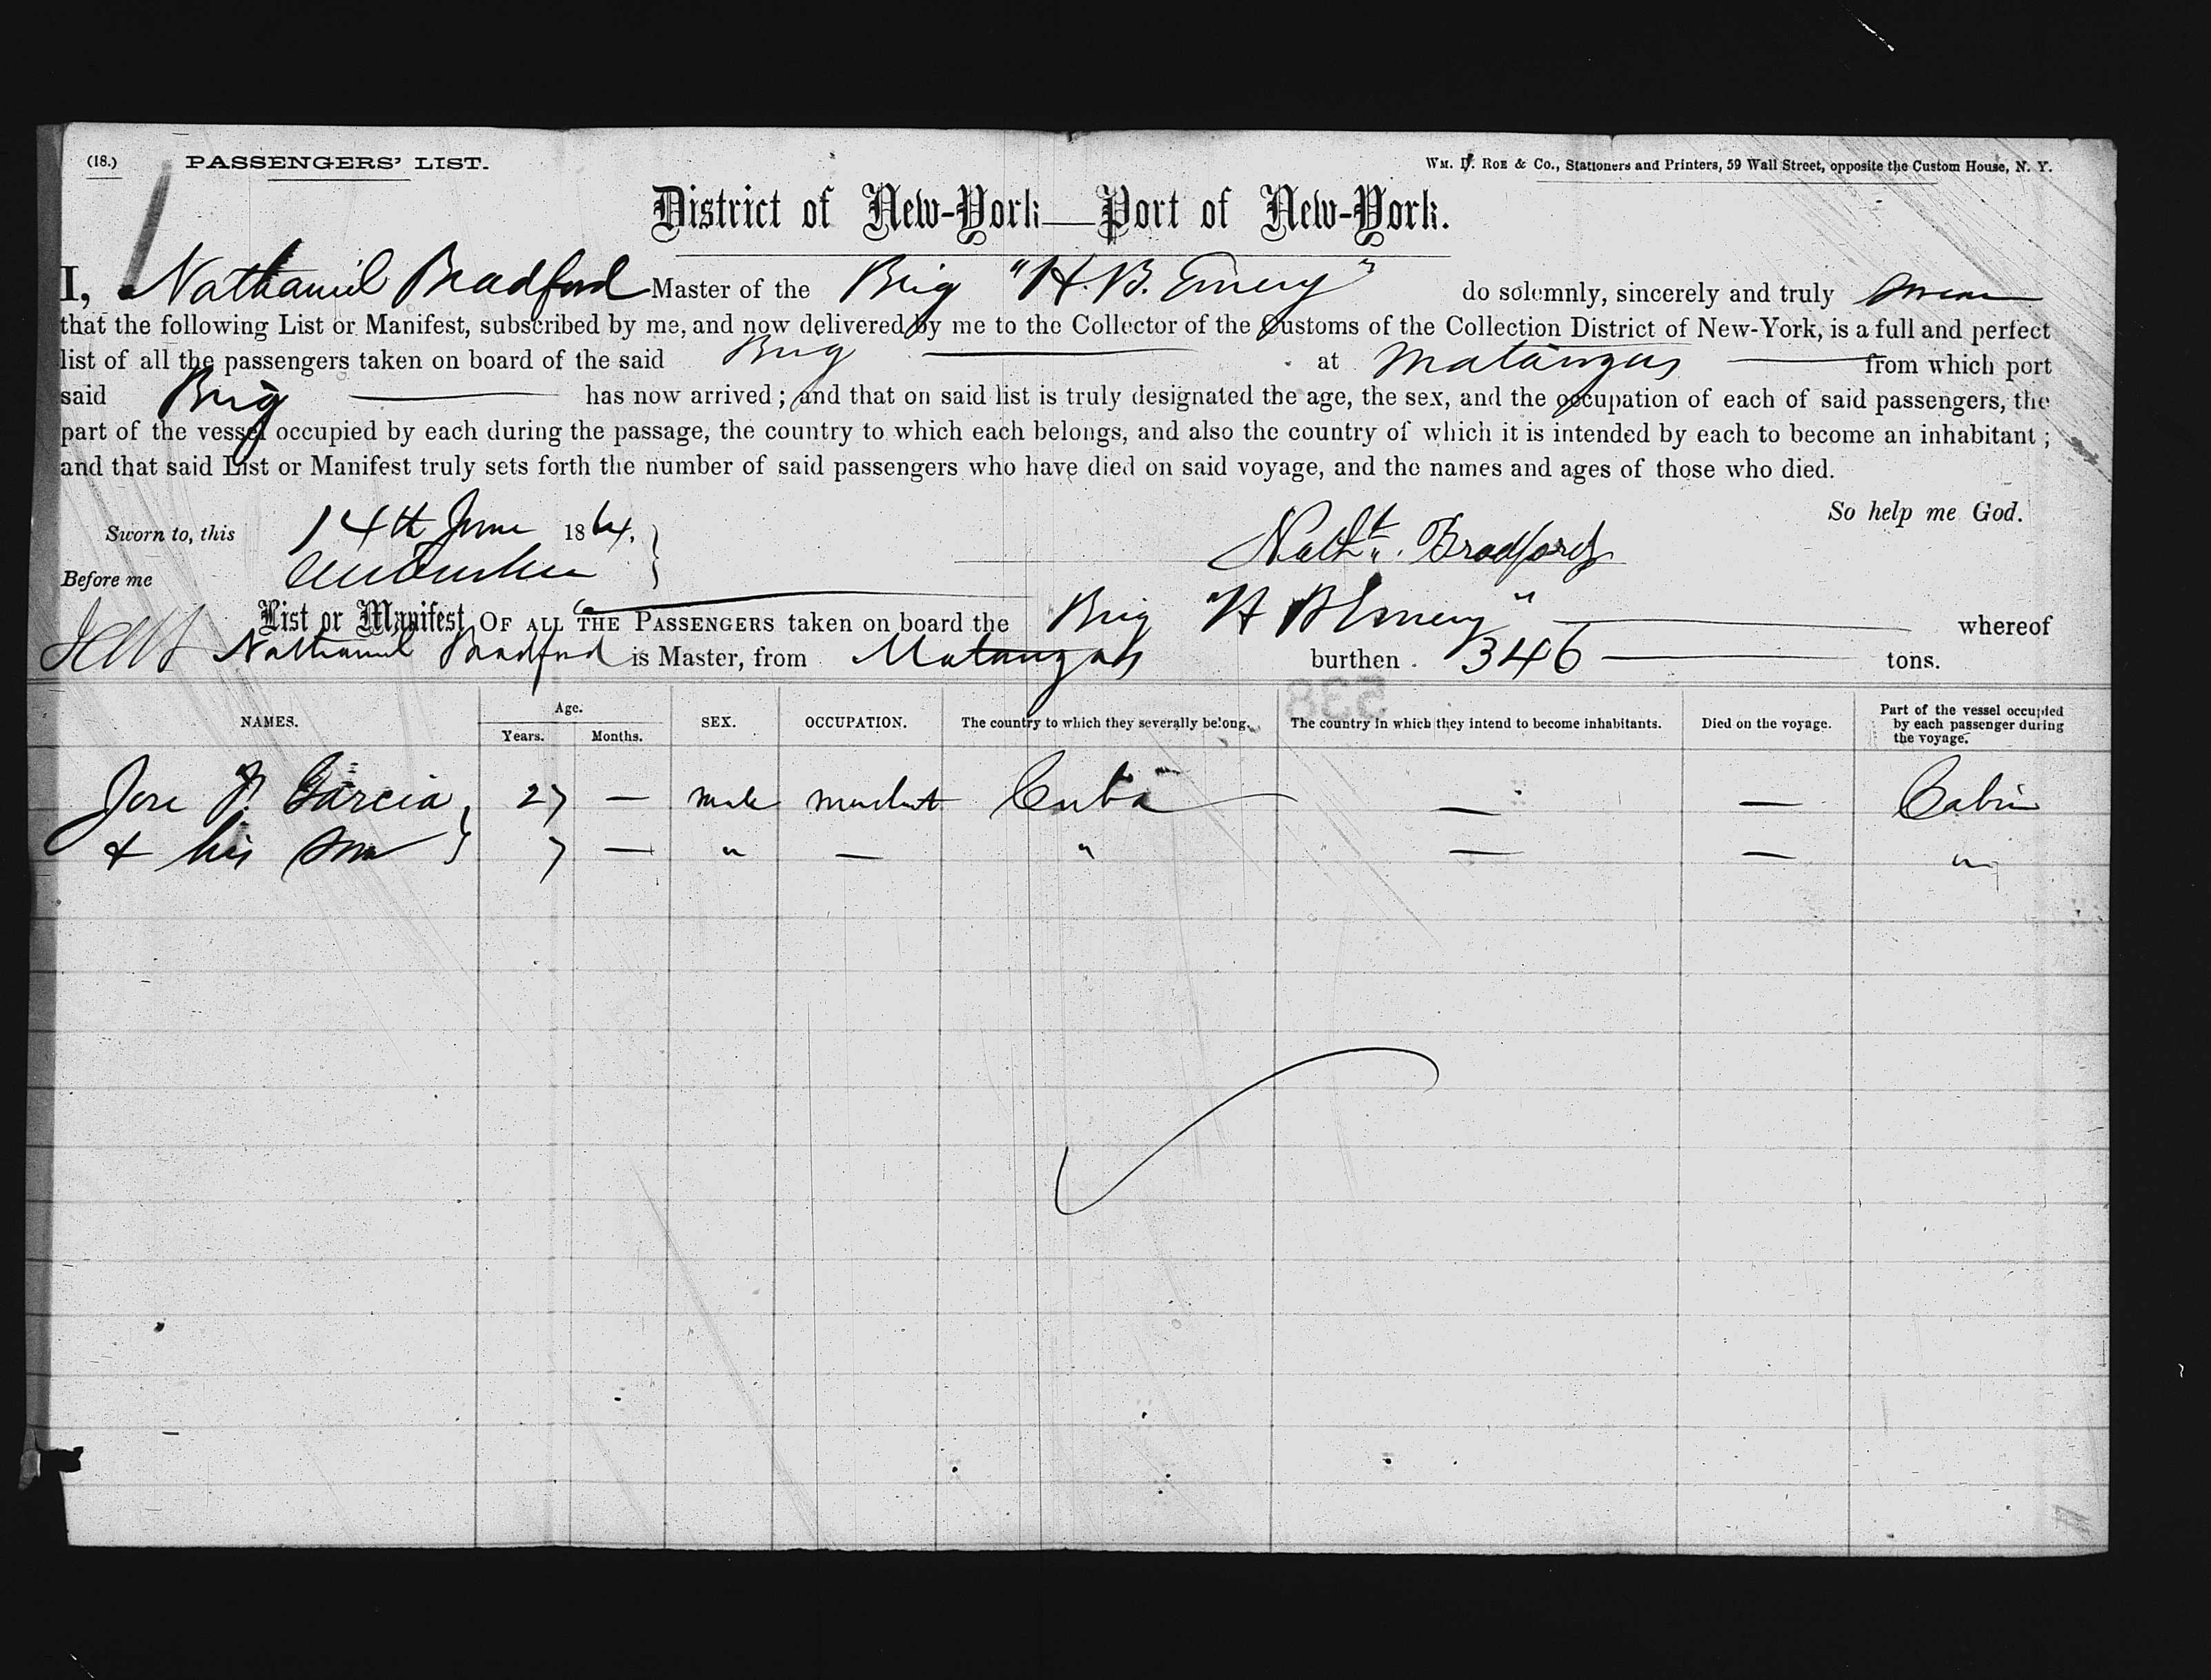 (18.) PASSENGERS' LIST. WM. D. ROE & Co., Stationers and Printers, 59 Wall Street, opposite the Custom House, N. Y.
District of New-York—Port of New-York.
I, Nathaniel Bradford Master of the Brig "H. B. Emery" do solemnly, sincerely and truly swear
that the following List or Manifest, subscribed by me, and now delivered by me to the Collector of the Customs of the Collection District of New-York, is a full and perfect
list of all the passengers taken on board of the said Brig — at Matanzas — from which port
said Brig — has now arrived; and that on said list is truly designated the age, the sex, and the occupation of each of said passengers, the
part of the vessel occupied by each during the passage, the country to which each belongs, and also the country of which it is intended by each to become an inhabitant;
and that said List or Manifest truly sets forth the number of said passengers who have died on said voyage, and the names and ages of those who died.
So help me God.
Sworn to, this 14th June 1864.
Nathl. Bradford
Before me
List or Manifest OF ALL THE PASSENGERS taken on board the Brig "H B Emery" — whereof
Nathaniel Bradford is Master, from Matanzas burthen 346 — tons.
538
NAMES. Age. Years. Months. SEX. OCCUPATION. The country to which they severally belong. The country in which they intend to become inhabitants. Died on the voyage. Part of the vessel occupied by each passenger during the voyage.
Jose Garcia 27 — male merchant Cuba — — Cabin
& his son 7 — " — " — — "